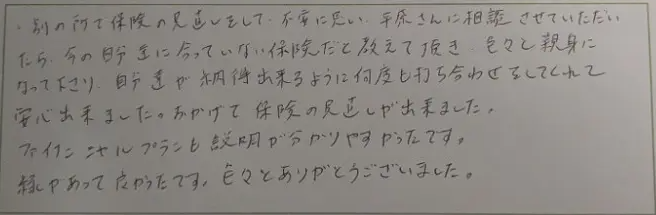 ・別の所で保険の見直しをして、不安に思い、平原さんに相談させていただい
たら、今の自分達に合っていない保険だと教えて頂き、色々と親身に
なって下さり、自分達が納得出来るように何度も打ち合わせをしてくれて
安心出来ました。おかげで保険の見直しが出来ました。
ファイナンシャルプランも説明が分かりやすかったです。
縁があって良かったです。色々とありがとうございました。